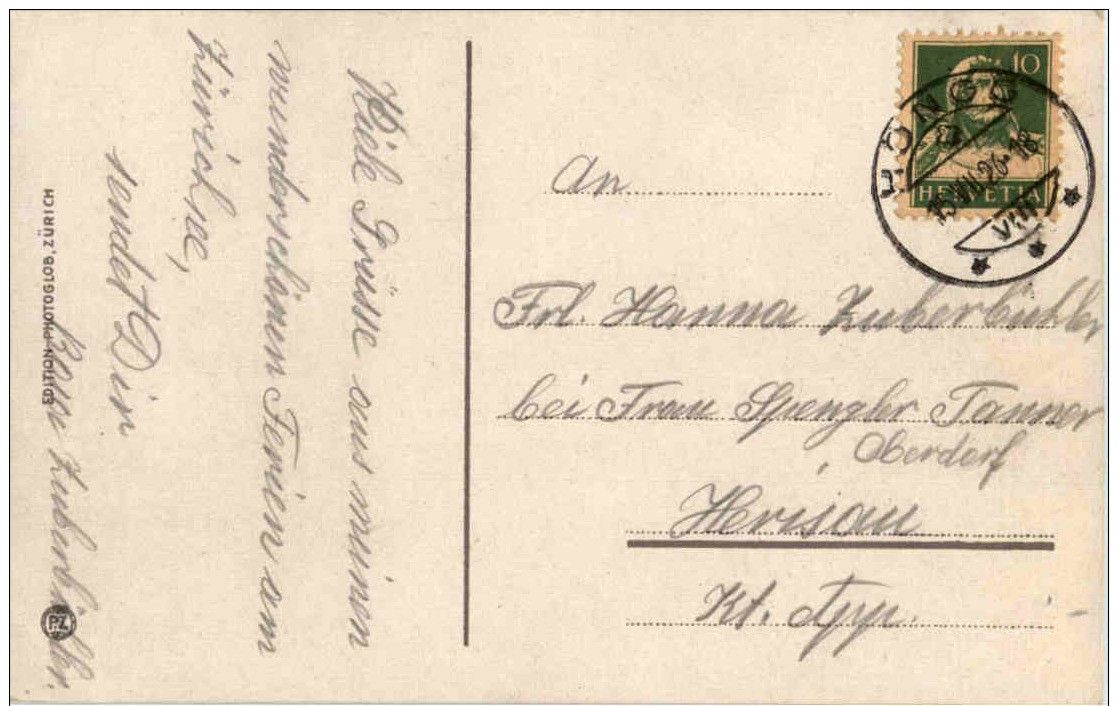 Viele Grüsse aus meinen
wunderschönen Ferien am
Zürichsee,
sendet Dir
Rösi Zuberbühler.
EDITION PHOTOGLOB, ZÜRICH
PZ
10
HELVETIA
HÖNGG
15.VII.26-18
VIII
An
Frl. Hanna Zuberbühler
bei Frau Spengler Tanner
Oberdorf
Herisau
Kt. App.